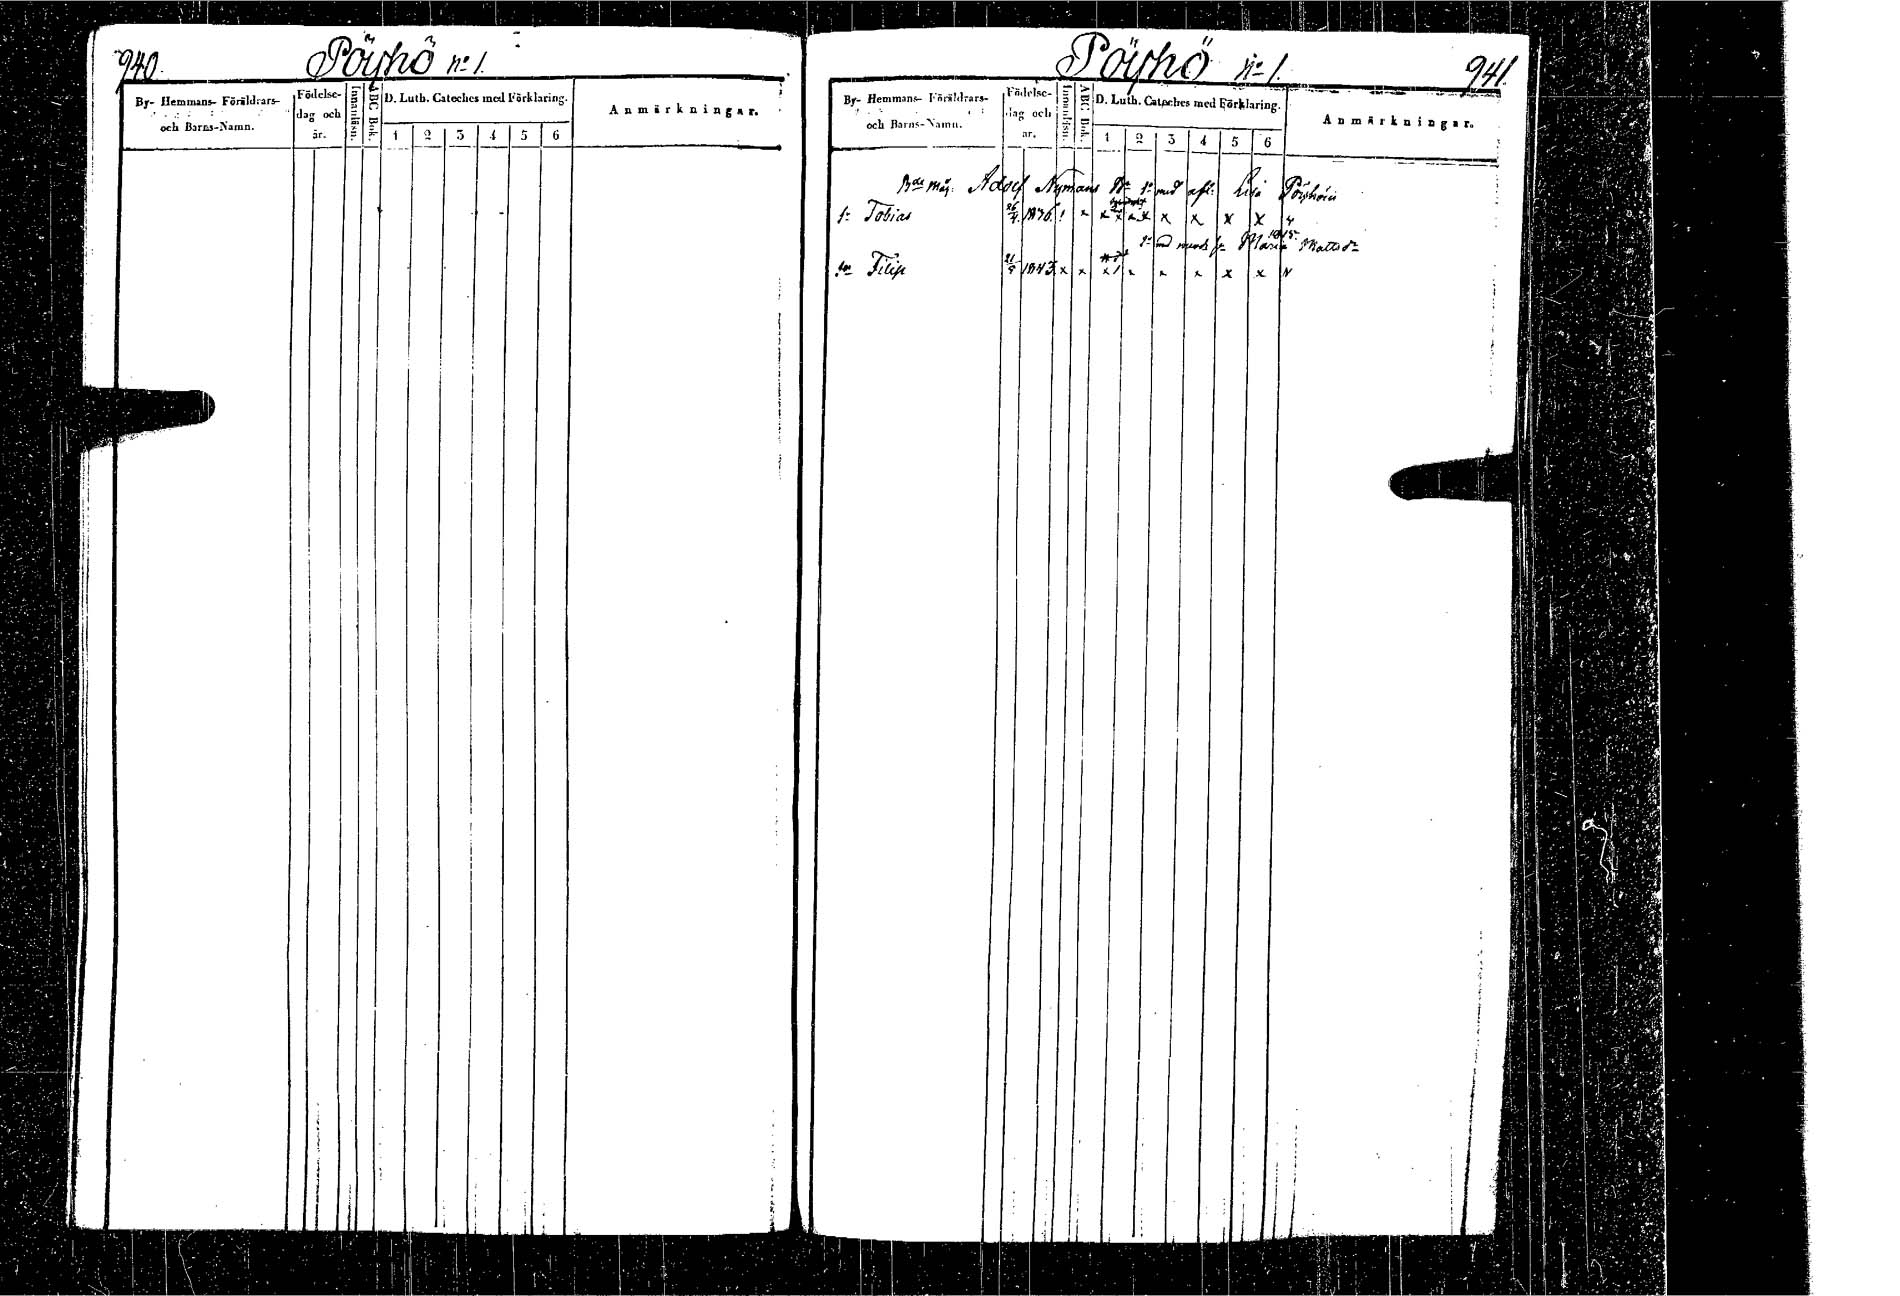 940.
Pöyhö no 1.
By- Hemmans- Föräldrars- och Barns-Namn.
Födelse- dag och år.
Innanläsn.
ABC Bok.
D. Luth. Cateches med Förklaring.
1 2 3 4 5 6
Anmärkningar.
Pöyhö No 1.
941.
By- Hemmans- Föräldrars- och Barns-Namn.
Födelse- dag och år.
Innanläsn.
ABC Bok.
D. Luth. Cateches med Förklaring.
1 2 3 4 5 6
Anmärkningar.
Adolf Nymans Bn 1o med afl. Lisa Pöyhöin
Sn Tobias 26/4 1836 x x x x x x x x
1845
2o med Maria Mattsdr
Son Filip 21/5 1843 x x x x x x x x